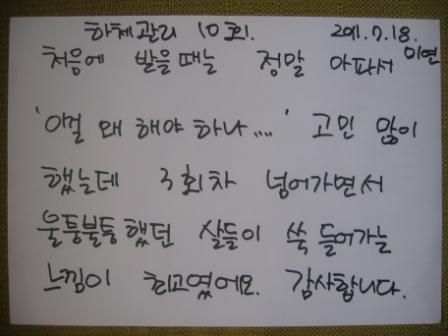 하체관리 10회. 2011.7.18.
미연
처음에 받을때는 정말 아파서
'이걸 왜 해야 하나....' 고민 많이
했는데 3회차 넘어가면서
울퉁불퉁했던 살들이 쑥 들어가는
느낌이 최고였어요. 감사합니다.